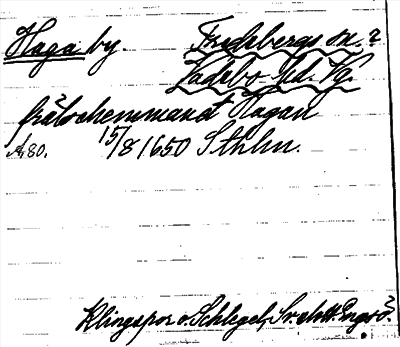 Haga by. Fredsbergs sn. ?
Vadsbo hd. Vg.
frälsehemmanet Hagan
A 80. 15/8 1650 Sthlm.
Klingspor o. Schlegel, Sv. slott. Engsö.